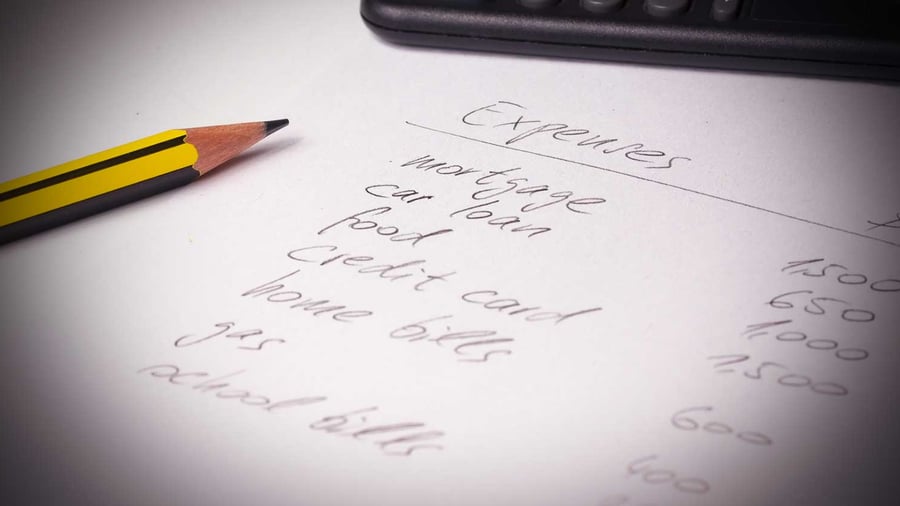 Expenses
mortgage 1,500
car loan 650
food 1,000
credit card 1,500
home bills 600
gas 400
school bills